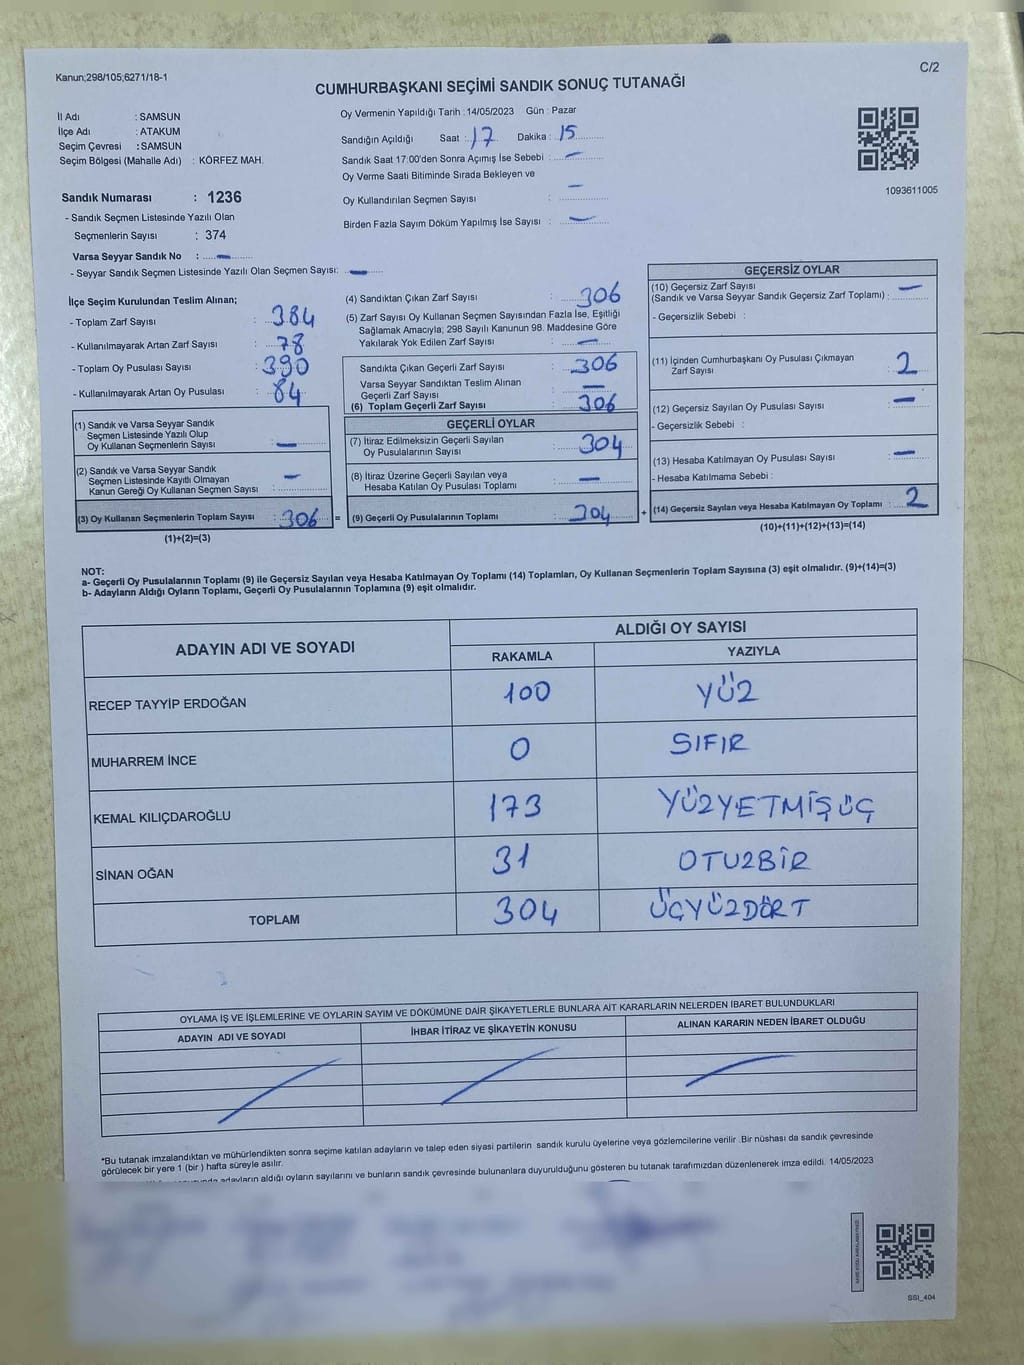 Kanun;298/105;6271/18-1
C/2
CUMHURBAŞKANI SEÇİMİ SANDIK SONUÇ TUTANAĞI
İl Adı : SAMSUN
İlçe Adı : ATAKUM
Seçim Çevresi : SAMSUN
Seçim Bölgesi (Mahalle Adı) : KÖRFEZ MAH.
Oy Vermenin Yapıldığı Tarih : 14/05/2023 Gün : Pazar
Sandığın Açıldığı Saat : 17 Dakika : 15
Sandık Saat 17:00'den Sonra Açımış İse Sebebi : —
Oy Verme Saati Bitiminde Sırada Bekleyen ve
Oy Kullandırılan Seçmen Sayısı : —
Birden Fazla Sayım Döküm Yapılmış İse Sayısı : —
1093611005
Sandık Numarası : 1236
- Sandık Seçmen Listesinde Yazılı Olan
Seçmenlerin Sayısı : 374
Varsa Seyyar Sandık No : —
- Seyyar Sandık Seçmen Listesinde Yazılı Olan Seçmen Sayısı: —
İlçe Seçim Kurulundan Teslim Alınan;
- Toplam Zarf Sayısı : 384
- Kullanılmayarak Artan Zarf Sayısı : 78
- Toplam Oy Pusulası Sayısı : 390
- Kullanılmayarak Artan Oy Pusulası : 84
(1) Sandık ve Varsa Seyyar Sandık
Seçmen Listesinde Yazılı Olup
Oy Kullanan Seçmenlerin Sayısı : —
(2) Sandık ve Varsa Seyyar Sandık
Seçmen Listesinde Kayıtlı Olmayan
Kanun Gereği Oy Kullanan Seçmen Sayısı : —
(3) Oy Kullanan Seçmenlerin Toplam Sayısı : 306
(1)+(2)=(3)
=
(4) Sandıktan Çıkan Zarf Sayısı : 306
(5) Zarf Sayısı Oy Kullanan Seçmen Sayısından Fazla İse, Eşitliği
Sağlamak Amacıyla; 298 Sayılı Kanunun 98. Maddesine Göre
Yakılarak Yok Edilen Zarf Sayısı : —
Sandıkta Çıkan Geçerli Zarf Sayısı : 306
Varsa Seyyar Sandıktan Teslim Alınan
Geçerli Zarf Sayısı : —
(6) Toplam Geçerli Zarf Sayısı : 306
GEÇERLİ OYLAR
(7) İtiraz Edilmeksizin Geçerli Sayılan
Oy Pusulalarının Sayısı : 304
(8) İtiraz Üzerine Geçerli Sayılan veya
Hesaba Katılan Oy Pusulası Toplamı : —
(9) Geçerli Oy Pusulalarının Toplamı : 304
+
GEÇERSİZ OYLAR
(10) Geçersiz Zarf Sayısı
(Sandık ve Varsa Seyyar Sandık Geçersiz Zarf Toplamı) : —
- Geçersizlik Sebebi :
(11) İçinden Cumhurbaşkanı Oy Pusulası Çıkmayan
Zarf Sayısı : 2
(12) Geçersiz Sayılan Oy Pusulası Sayısı : —
- Geçersizlik Sebebi :
(13) Hesaba Katılmayan Oy Pusulası Sayısı : —
- Hesaba Katılmama Sebebi :
(14) Geçersiz Sayılan veya Hesaba Katılmayan Oy Toplamı : 2
(10)+(11)+(12)+(13)=(14)
NOT:
a- Geçerli Oy Pusulalarının Toplamı (9) ile Geçersiz Sayılan veya Hesaba Katılmayan Oy Toplamı (14) Toplamları, Oy Kullanan Seçmenlerin Toplam Sayısına (3) eşit olmalıdır. (9)+(14)=(3)
b- Adayların Aldığı Oyların Toplamı, Geçerli Oy Pusulalarının Toplamına (9) eşit olmalıdır.
ADAYIN ADI VE SOYADI
ALDIĞI OY SAYISI
RAKAMLA YAZIYLA
RECEP TAYYİP ERDOĞAN 100 YÜZ
MUHARREM İNCE 0 SIFIR
KEMAL KILIÇDAROĞLU 173 YÜZYETMİŞÜÇ
SİNAN OĞAN 31 OTUZBİR
TOPLAM 304 ÜÇYÜZDÖRT
OYLAMA İŞ VE İŞLEMLERİNE VE OYLARIN SAYIM VE DÖKÜMÜNE DAİR ŞİKAYETLERLE BUNLARA AİT KARARLARIN NELERDEN İBARET BULUNDUKLARI
ADAYIN ADI VE SOYADI İHBAR İTİRAZ VE ŞİKAYETİN KONUSU ALINAN KARARIN NEDEN İBARET OLDUĞU
*Bu tutanak imzalandıktan ve mühürlendikten sonra seçime katılan adayların ve talep eden siyasi partilerin sandık kurulu üyelerine veya gözlemcilerine verilir .Bir nüshası da sandık çevresinde
görülecek bir yere 1 (bir ) hafta süreyle asılır.
adayların aldığı oyların sayılarını ve bunların sandık çevresinde bulunanlara duyurulduğunu gösteren bu tutanak tarafımızdan düzenlenerek imza edildi. 14/05/2023
SSI_404